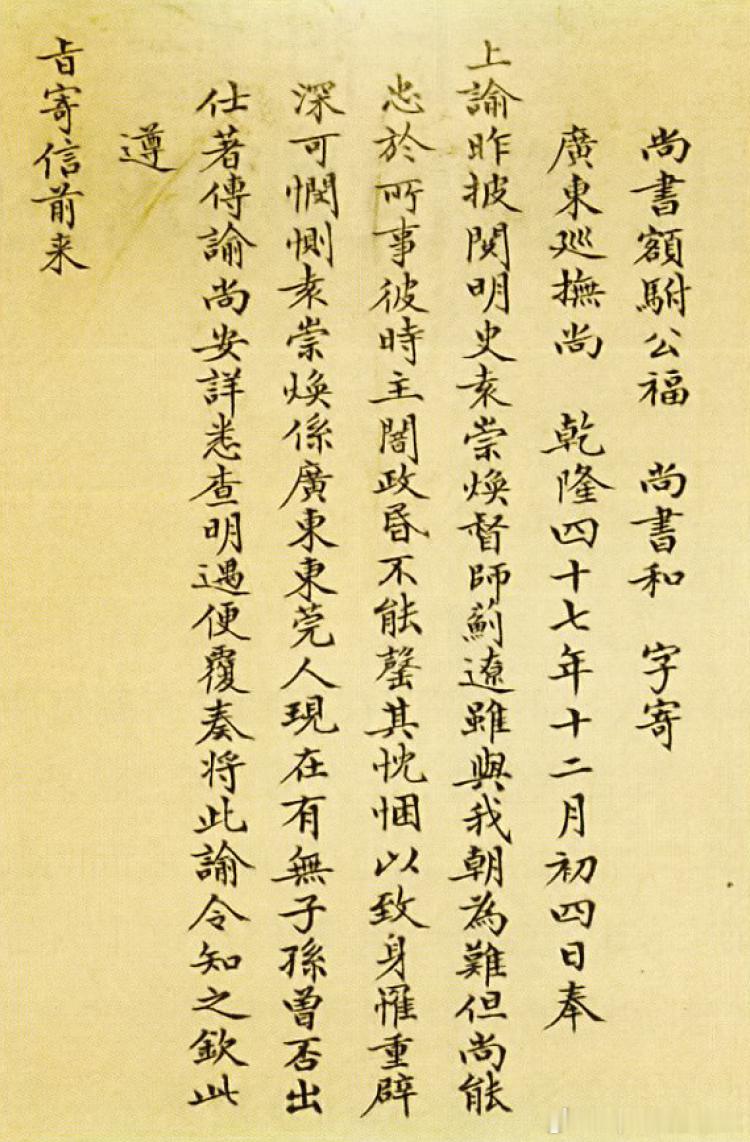 尚書額駙公福 尚書和 字寄
廣東巡撫尚 乾隆四十七年十二月初四日奉
上諭昨披閱明史袁崇煥督師薊遼雖與我朝為難但尚能
忠於所事彼時主闇政昏不能罄其忱悃以致身罹重辟
深可憫惻袁崇煥係廣東東莞人現在有無子孫曾否出
仕著傳諭尚安詳悉查明遇便覆奏將此諭令知之欽此
遵
旨寄信前来